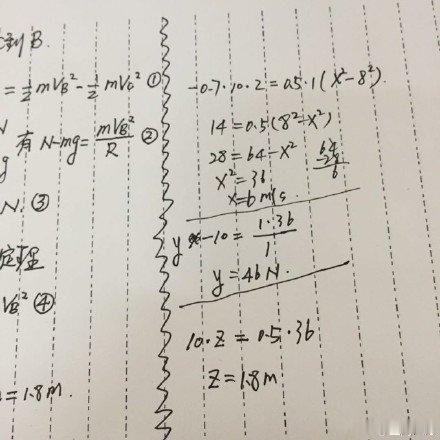 到B.
= ½mVB² - ½mV0² ①
有 N-mg = mVB²/R ②
N. ③
定理
VB² ④
= 1.8m.
-0.7·10·2 = 0.5·1(X²-8²)
14 = 0.5(8²-X²)
28 = 64-X²
X² = 36
X=6m/s.
y-10 = 1·36/1
y = 46N.
10·Z = 0.5·36
Z = 1.8m